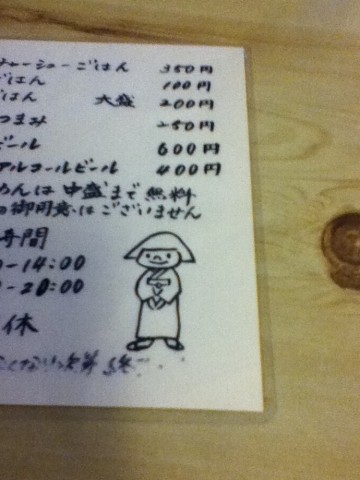 チャーシューごはん 350円
ごはん 100円
ごはん 大盛 200円
つまみ 250円
ビール 600円
アルコールビール 400円
めんは中盛まで無料
の御用意はございません
時間
-14:00
-20:00
休